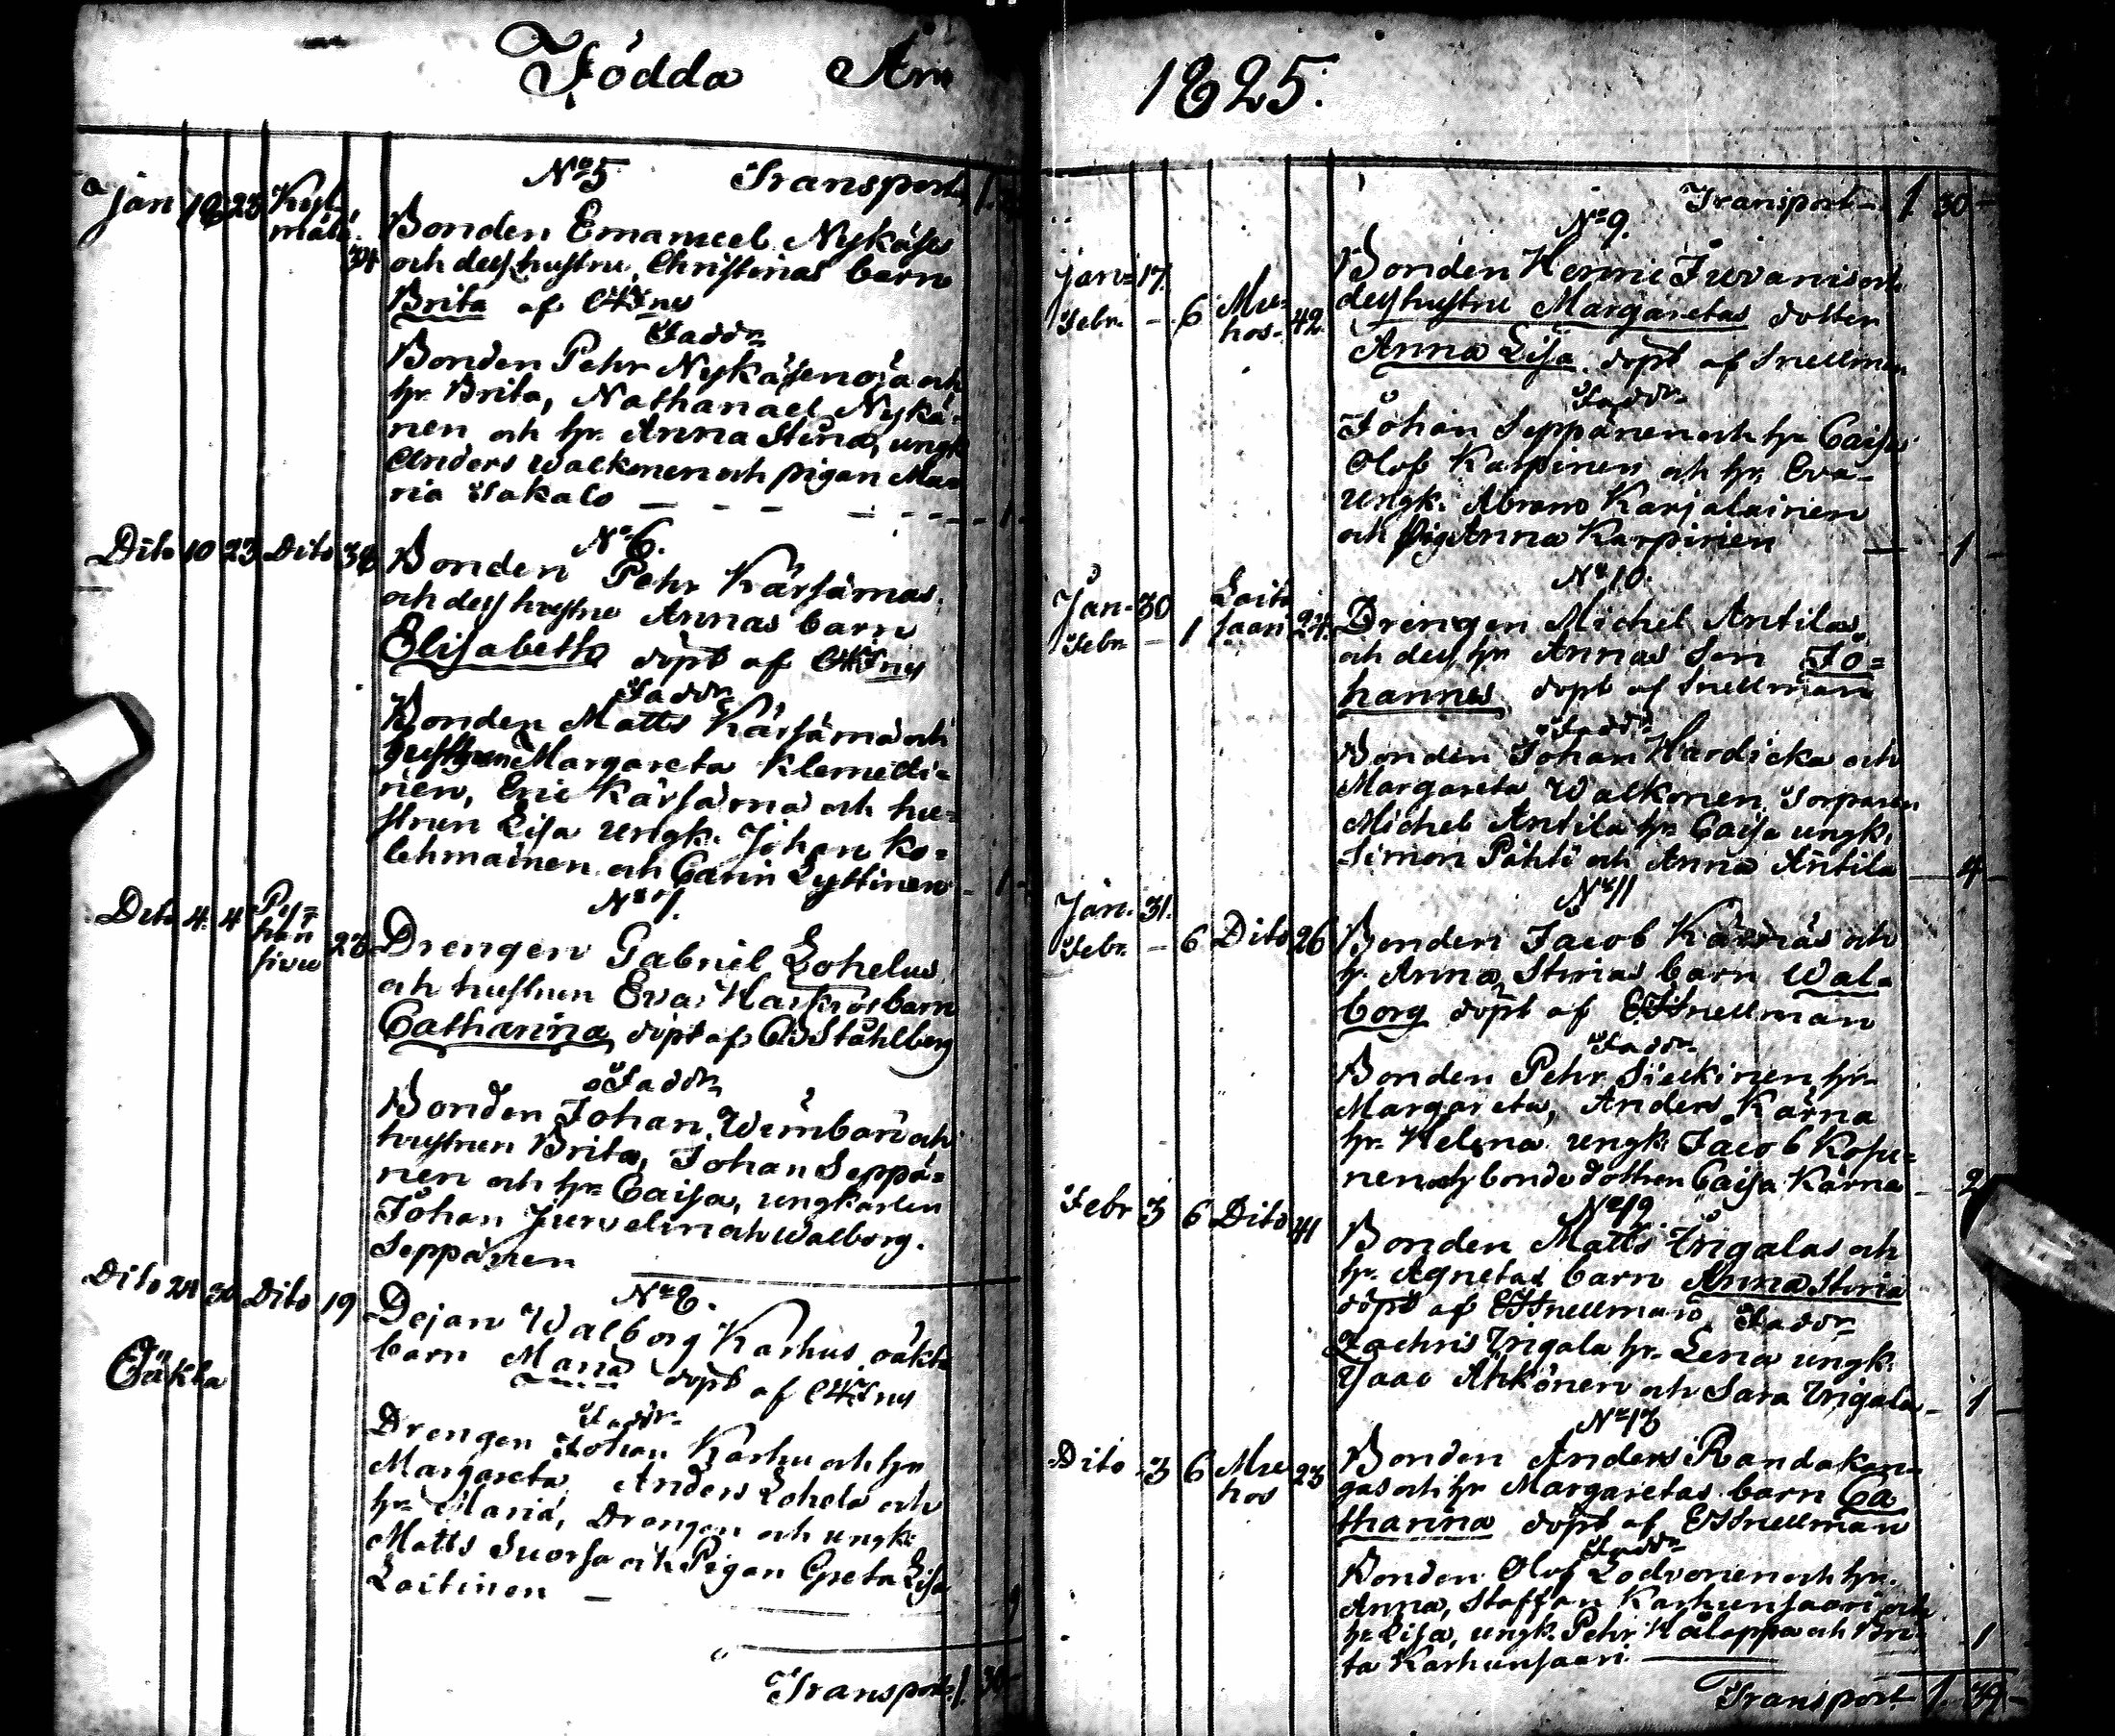 Födda År
Jan 10 23 Kyl-
mälä 34
No 5 Transport 1
Bonden Emanuel Nykäses
och dess hustru Christinas barn
Brita af
Faddr
Bonden Pehr Nykäsenoja och
hr. Brita, Nathanael Nykä-
nen och hr. Anna Stina, ungk
Anders Walkonen och pigan Ma-
ria Sakalo 1
Dito 10 23 Dito
No 6.
Bonden Pehr Kärsämäs
och dess hustru Annas barn
Elisabeth döpt af
Faddr
Bonden Matts Kärsämä och
hustrun Margareta Klemetti-
nen, Eric Kärsämä och hu-
strun Lisa ungk. Johan Ko-
lehmainen och Carin Lyttinen 1
Dito 4 4 Pyhänsivu 28
No 7.
Drengen Gabriel Lohelas
och hustrun Eva barn
Catharina döpt af Ståhlberg
Faddr
Bonden Johan och
hustrun Brita, Johan Seppä-
nen och hr. Caisa, ungkarlen
Johan Jurvelin och Walborg
Seppänen
Dito 24 30 Dito 19
Oäkta
No 8.
Dejan Walborg Karhus oäkta
barn Maria döpt af
Faddr
Drengen Johan Karhu och hr
Margareta Anders Lohela och
hr. Maria, Drengen och ungk.
Matts Suorsa och Pigan Greta Lisa
Laitinen
Transport 1 30
1825.
Transport 1 30
No 9.
Jan 17.
Febr. - 6 Mu-
hos 42
Bonden Henric Juvanis och
dess hustru Margaretas dotter
Anna Lisa döpt af Snellman
Faddr
Johan Seppänen och hr Caisa
Olof Karpinen och hr. Eva
ungk. Abram Karjalainen
och Pig Anna Karpinen 1
No 10.
Jan 30
Febr - 1 Laita
saari 24
Drengen Michel Antilas
och dess hr Annas Son Jo-
hannes döpt af Snellman
Faddr
Bonden Johan Hardicka och
Margareta Walkonen Torparen
Michel Antila hr Caisa ungk.
Simon Pähti och Anna Antila 4
No 11
Jan. 31.
Febr. - 6 Dito 26
Bonden Jacob Kärnäs och
hr Anna Stinas barn Wal-
borg döpt af Snellman
Faddr
Bonden Pehr Sieckinen hr
Margareta, Anders Kärnä
hr. Helena ungk. Jacob Kosu-
nen och bondedottren Caisa Kärnä 2
Febr 3 6 Dito 41
Bonden Matts Yrigalas och
hr. Agnetas barn Anna Stina
döpt af Snellman Faddr
Zachris Yrigala hr. Lena ungk.
Isaac Ahkonen och Sara Yrigala 1
No 13
Dito 3 6 Mu
hos 23
Bonden Anders Randakan-
gas och hr Margaretas barn Ca
tharina döpt af Snellman
Faddr
Bonden Olof Lodvonen och hr.
Anna, Staffan Karhunsaari och
hr Lisa, ungk. Pehr Hälappa och Bri-
ta Karhunsaari 1
Transport 1 39